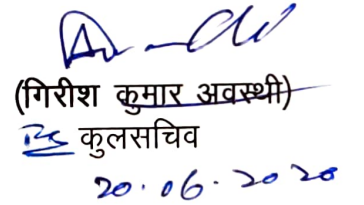 (गिरीश कुमार अवस्थी)
कुलसचिव
20.06.2020